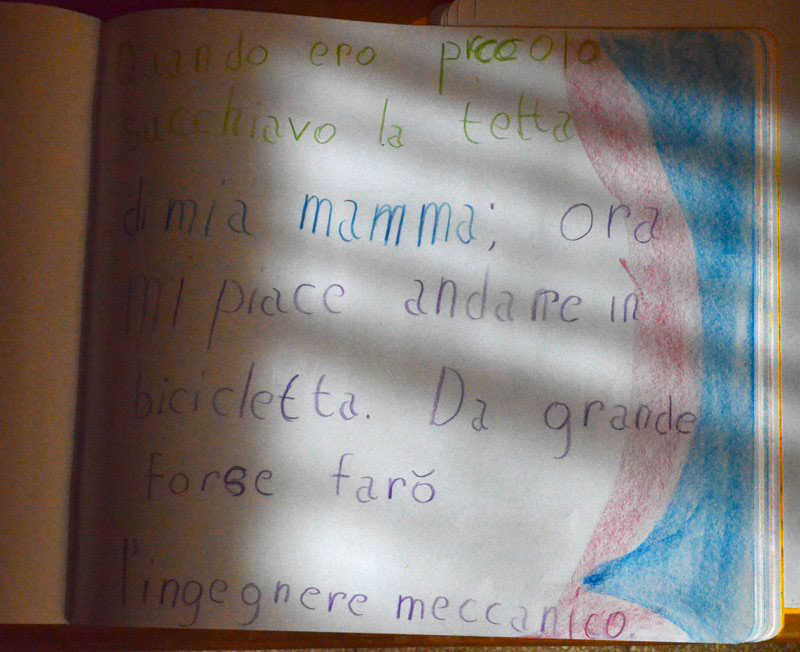 Quando ero piccolo
succhiavo la tetta
di mia mamma; ora
mi piace andare in
bicicletta. Da grande
forse farŏ
l'ingegnere meccanico.